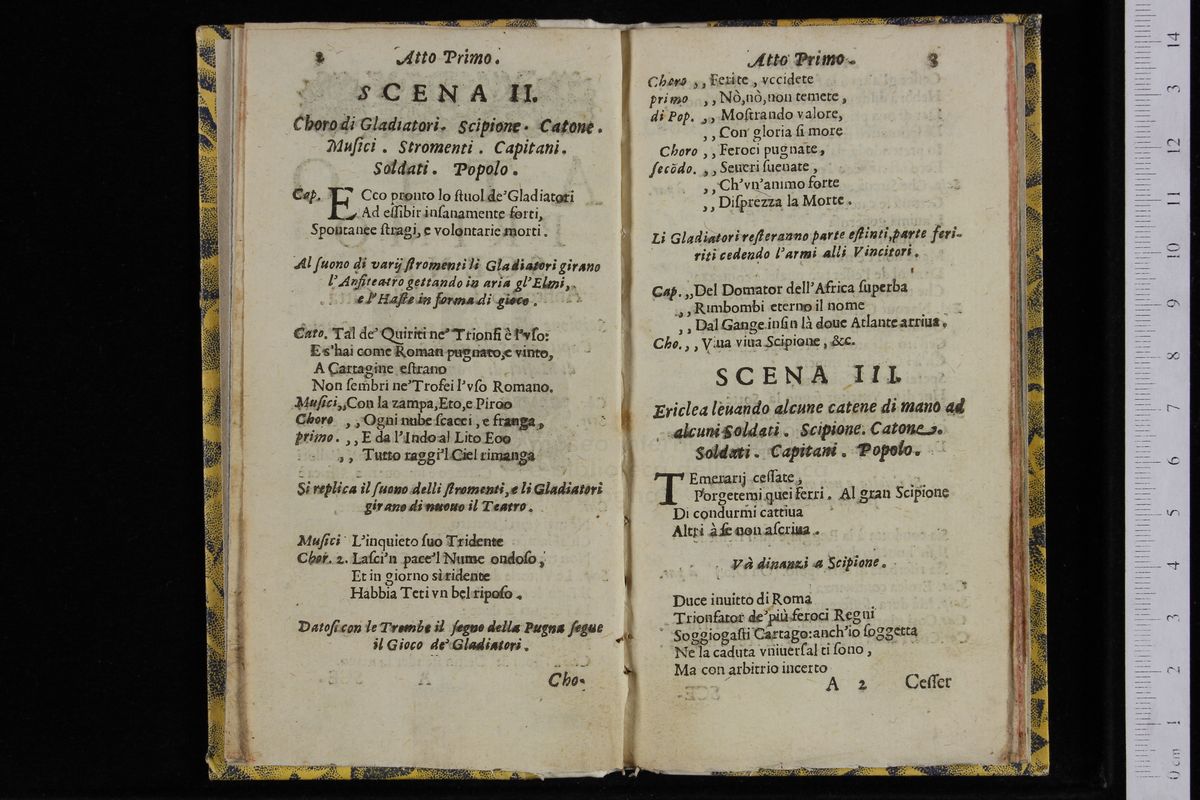 2 Atto Primo.
SCENA II.
Choro di Gladiatori. Scipione. Catone.
Musici. Stromenti. Capitani.
Soldati. Popolo.
Cap. ECco pronto lo ſtuol de'Gladiatori
Ad eſſibir inſanamente forti,
Spontanee ſtragi, e volontarie morti.
Al ſuono di varij ſtromenti li Gladiatori girano
l'Anfiteatro gettando in aria gl'Elmi,
e l'Haſte in forma di gioco.
Cato. Tal de' Quiriti ne' Trionfi è l'vſo:
E s'hai come Roman pugnato,e vinto,
A Cartagine eſtrano
Non ſembri ne'Trofei l'vſo Romano.
Muſici,,Con la zampa,Eto,e Piroo
Choro ,,Ogni nube ſcacci, e franga,
primo. ,,E da l'Indo al Lito Eoo
,, Tutto raggi'l Ciel rimanga
Si replica il ſuono delli ſtromenti,e li Gladiatori
girano di nuouo il Teatro.
Muſici L'inquieto ſuo Tridente
Chor. 2. Laſci'n pace'l Nume ondoſo,
Et in giorno sì ridente
Habbia Teti vn bel ripoſo.
Datoſi con le Trombe il ſegno della Pugna ſegue
il Gioco de' Gladiatori.
Cho-
Atto Primo. 3
Choro ,,Ferite, vccidete
primo ,,Nò,nò,non temete,
di Pop. ,,Moſtrando valore,
,,Con gloria ſi more
Choro ,,Feroci pugnate,
ſecõdo. ,,Seueri ſuenate,
,,Ch'vn'animo forte
,,Diſprezza la Morte.
Li Gladiatori reſteranno parte eſtinti,parte feri-
riti cedendo l'armi alli Vincitori.
Cap.,,Del Domator dell'Africa ſuperba
,,Rimbombi eterno il nome
,,Dal Gange inſin là doue Atlante arriua.
Cho.,,Viua viua Scipione, &c.
SCENA III.
Ericlea leuando alcune catene di mano ad
alcuni Soldati. Scipione. Catone.
Soldati. Capitani. Popolo.
TEmerarij ceſſate,
Porgetemi quei ferri. Al gran Scipione
Di condurmi cattiua
Altri à ſe non aſcriua.
Và dinanzi a Scipione.
Duce inuitto di Roma
Trionfator de'più feroci Regni
Soggiogaſti Cartago:anch'io ſoggetta
Ne la caduta vniuerſal ti ſono,
Ma con arbitrio incerto
A 2 Ceſſer
14
3
12
11
10
9
8
7
6
5
4
3
2
1
0 cm